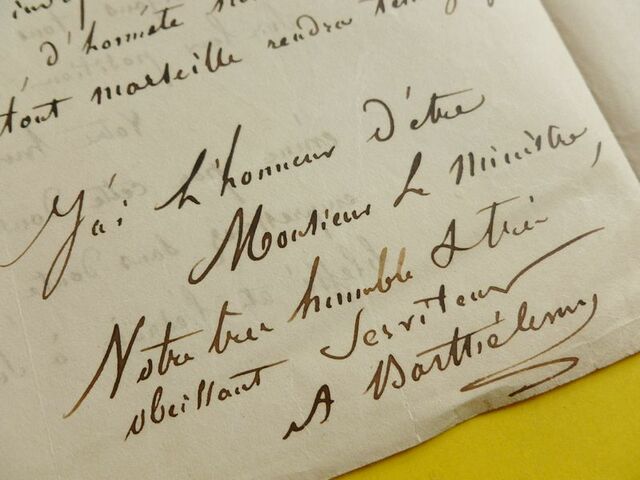 d'honnête
tout marseille rendra
J'ai L'honneur d'être
Monsieur Le Ministre,
Votre tres humble & très
obeissant Serviteur
A Barthélemy